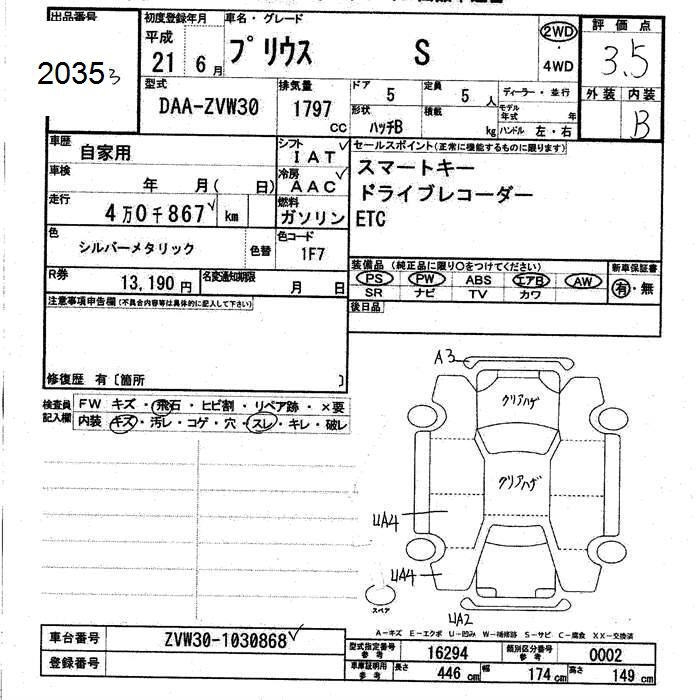 出品番号
20353
初度登録年月
平成
21 6月
車名・グレード
プリウス S
2WD
・
4WD
評価点
3.5
型式
DAA-ZVW30
排気量
1797
CC
ドア 5
定員 5 人
形状
ハッチB
積載
kg
ディーラー・並行
モデル年式 年
ハンドル 左・右
外装 内装
B
車歴
自家用
シフト
IAT
車検
年 月( 日)
冷房
AAC
走行
4万0千867 km
燃料
ガソリン
色
シルバーメタリック
色替
色コード
1F7
R券
13,190円
名変通知期限
月 日
セールスポイント(正常に機能するものに限ります)
スマートキー
ドライブレコーダー
ETC
装備品 (純正品に限り○をつけてください)
PS PW ABS エアB AW
SR ナビ TV カワ
新車保証書
有・無
後日品
注意事項申告欄(不具合内容等は具体的に記入して下さい)
修復歴 有〔箇所 〕
検査員
記入欄
FW キズ・飛石・ヒビ割・リペア跡・×要
内装 キズ・汚レ・コゲ・穴・スレ・キレ・破レ
A3
クリアハゲ
クリアハゲ
UA4
UA4
スペア
UA2
A-キズ E-エクボ U-凹み W-補修跡 S-サビ C-腐食 XX-交換済
車台番号
ZVW30-1030868
登録番号
型式指定番号
参考
16294
類別区分番号
参考
0002
車庫証明用
参考
長さ 446cm 幅 174cm 高さ 149cm